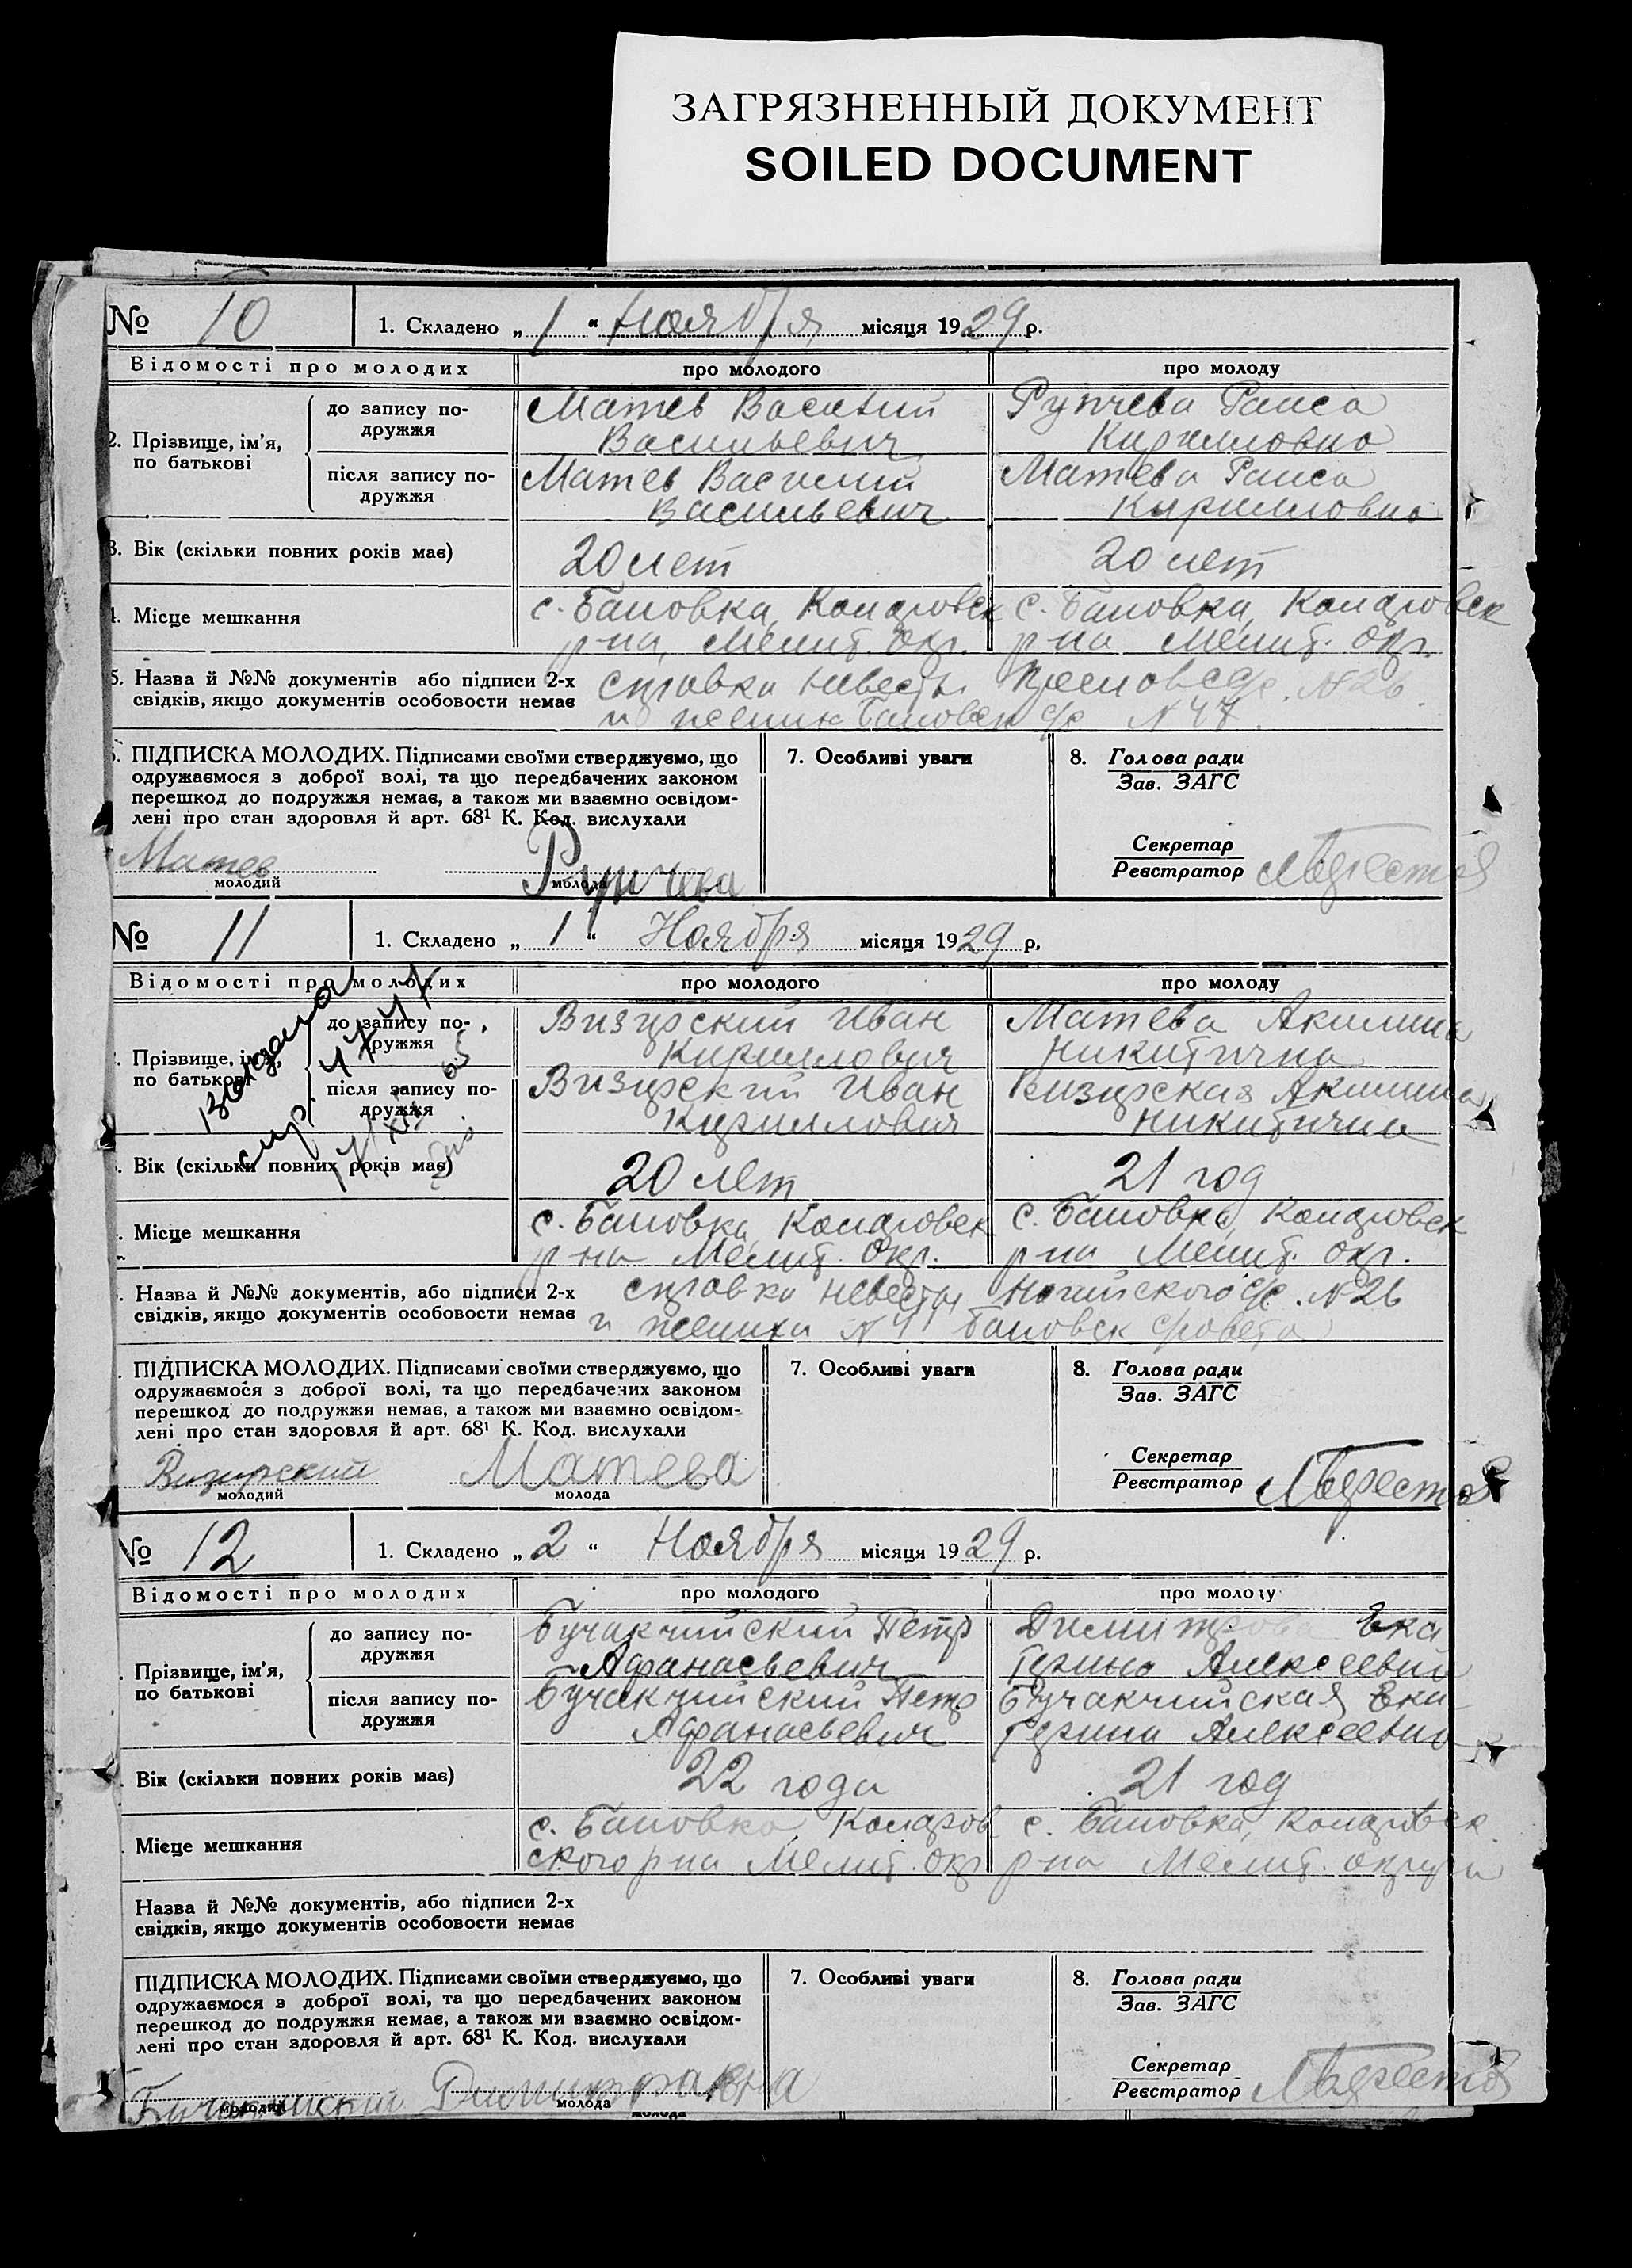 ЗАГРЯЗНЕННЫЙ ДОКУМЕНТ
SOILED DOCUMENT
№ 10 1. Складено „ 1 “ Ноября місяця 1929 р.
Відомості про молодих про молодого про молоду
2. Прізвище, ім'я, по батькові
до запису по-
дружжя
Матев Василий
Васильевич
Рупчева Раиса
Кирилловна
після запису по-
дружжя
Матев Василий
Васильевич
Матева Раиса
Кирилловна
3. Вік (скільки повних років має) 20 лет 20 лет
4. Місце мешкання
с. Бановка,
р-на, Мелит. окр.
с. Бановка,
р-на Мелит. окр.
5. Назва й №№ документів або підписи 2-х
свідків, якщо документів особовости немає
справка невесты № 26
и Бановск с/с № 47.
ПІДПИСКА МОЛОДИХ. Підписами своїми стверджуємо, що
одружаємося з доброї волі, та що передбачених законом
перешкод до подружжя немає, а також ми взаємно освідом-
лені про стан здоровля й арт. 68¹ К. Код. вислухали
Матев
молодий
Рупчева
молода
7. Особливі уваги
8. Голова ради
Зав. ЗАГС
Секретар
Реєстратор
№ 11 1. Складено „ 1 “ Ноября місяця 1929 р.
Відомості про молодих про молодого про молоду
выдана
Прізвище, ім'я,
по батькові
до запису по-
дружжя
Визирский Иван
Кириллович
Матева Акилина
Никитична
після запису по-
дружжя
Визирский Иван
Кириллович
Визирская Акилина
Никитична
Вік (скільки повних років має) 20 лет 21 год
Місце мешкання
с. Бановка,
р-на Мелит. окр.
с. Бановка,
р-на Мелит. окр.
Назва й №№ документів, або підписи 2-х
свідків, якщо документів особовости немає
справка невесты с/с. № 26
и жениха Бановск с/совета
ПІДПИСКА МОЛОДИХ. Підписами своїми стверджуємо, що
одружаємося з доброї волі, та що передбачених законом
перешкод до подружжя немає, а також ми взаємно освідом-
лені про стан здоровля й арт. 68¹ К. Код. вислухали
Визирский
молодий
Матева
молода
7. Особливі уваги
8. Голова ради
Зав. ЗАГС
Секретар
Реєстратор
№ 12 1. Складено „ 2 “ Ноября місяця 1929 р.
Відомості про молодих про молодого про молоду
Прізвище, ім'я,
по батькові
до запису по-
дружжя
Бучакчийский Петр
Афанасьевич
Димитрова Ека
терина Алексеевна
після запису по-
дружжя
Бучакчийский Петр
Афанасьевич
Бучакчийская Ека
терина Алексеевна
Вік (скільки повних років має) 22 года 21 год
Місце мешкання
с. Бановка,
ского р-на Мелит. окр
с. Бановка,
р-на Мелит. округа
Назва й №№ документів, або підписи 2-х
свідків, якщо документів особовости немає
ПІДПИСКА МОЛОДИХ. Підписами своїми стверджуємо, що
одружаємося з доброї волі, та що передбачених законом
перешкод до подружжя немає, а також ми взаємно освідом-
лені про стан здоровля й арт. 68¹ К. Код. вислухали
молодий
молода
7. Особливі уваги
8. Голова ради
Зав. ЗАГС
Секретар
Реєстратор
молода